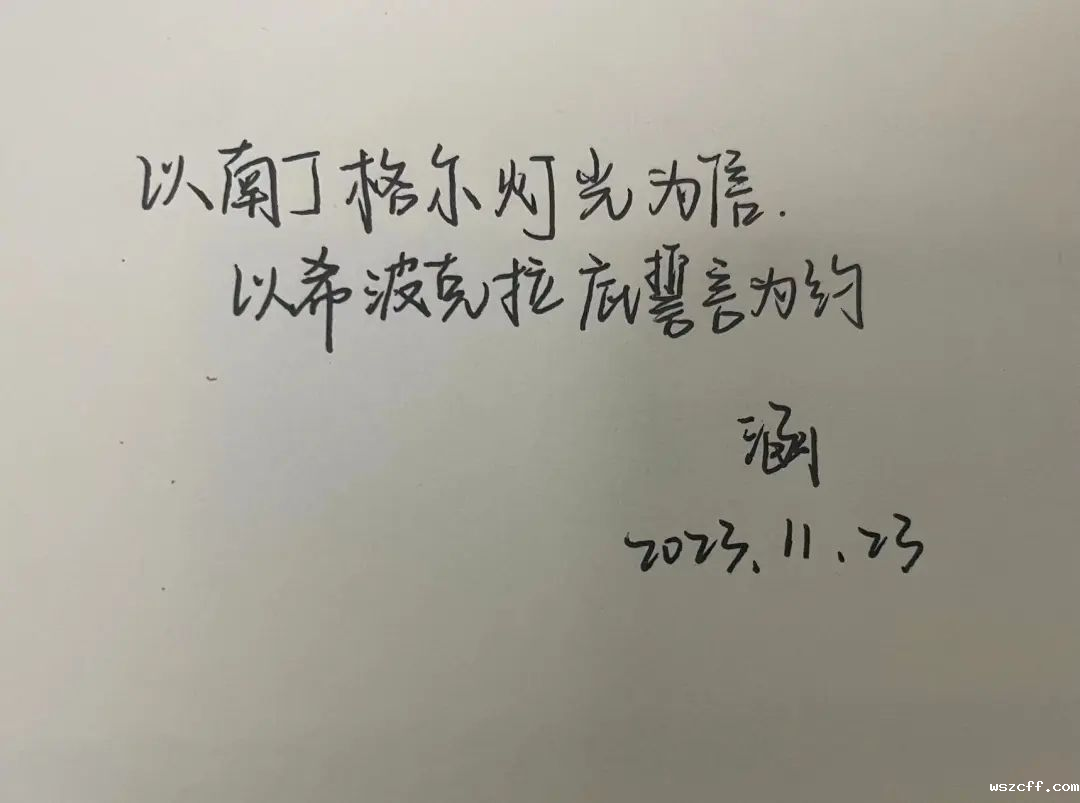 以南丁格尔灯光为信.
以希波克拉底誓言为约
涵
2023.11.23
wszcff.com